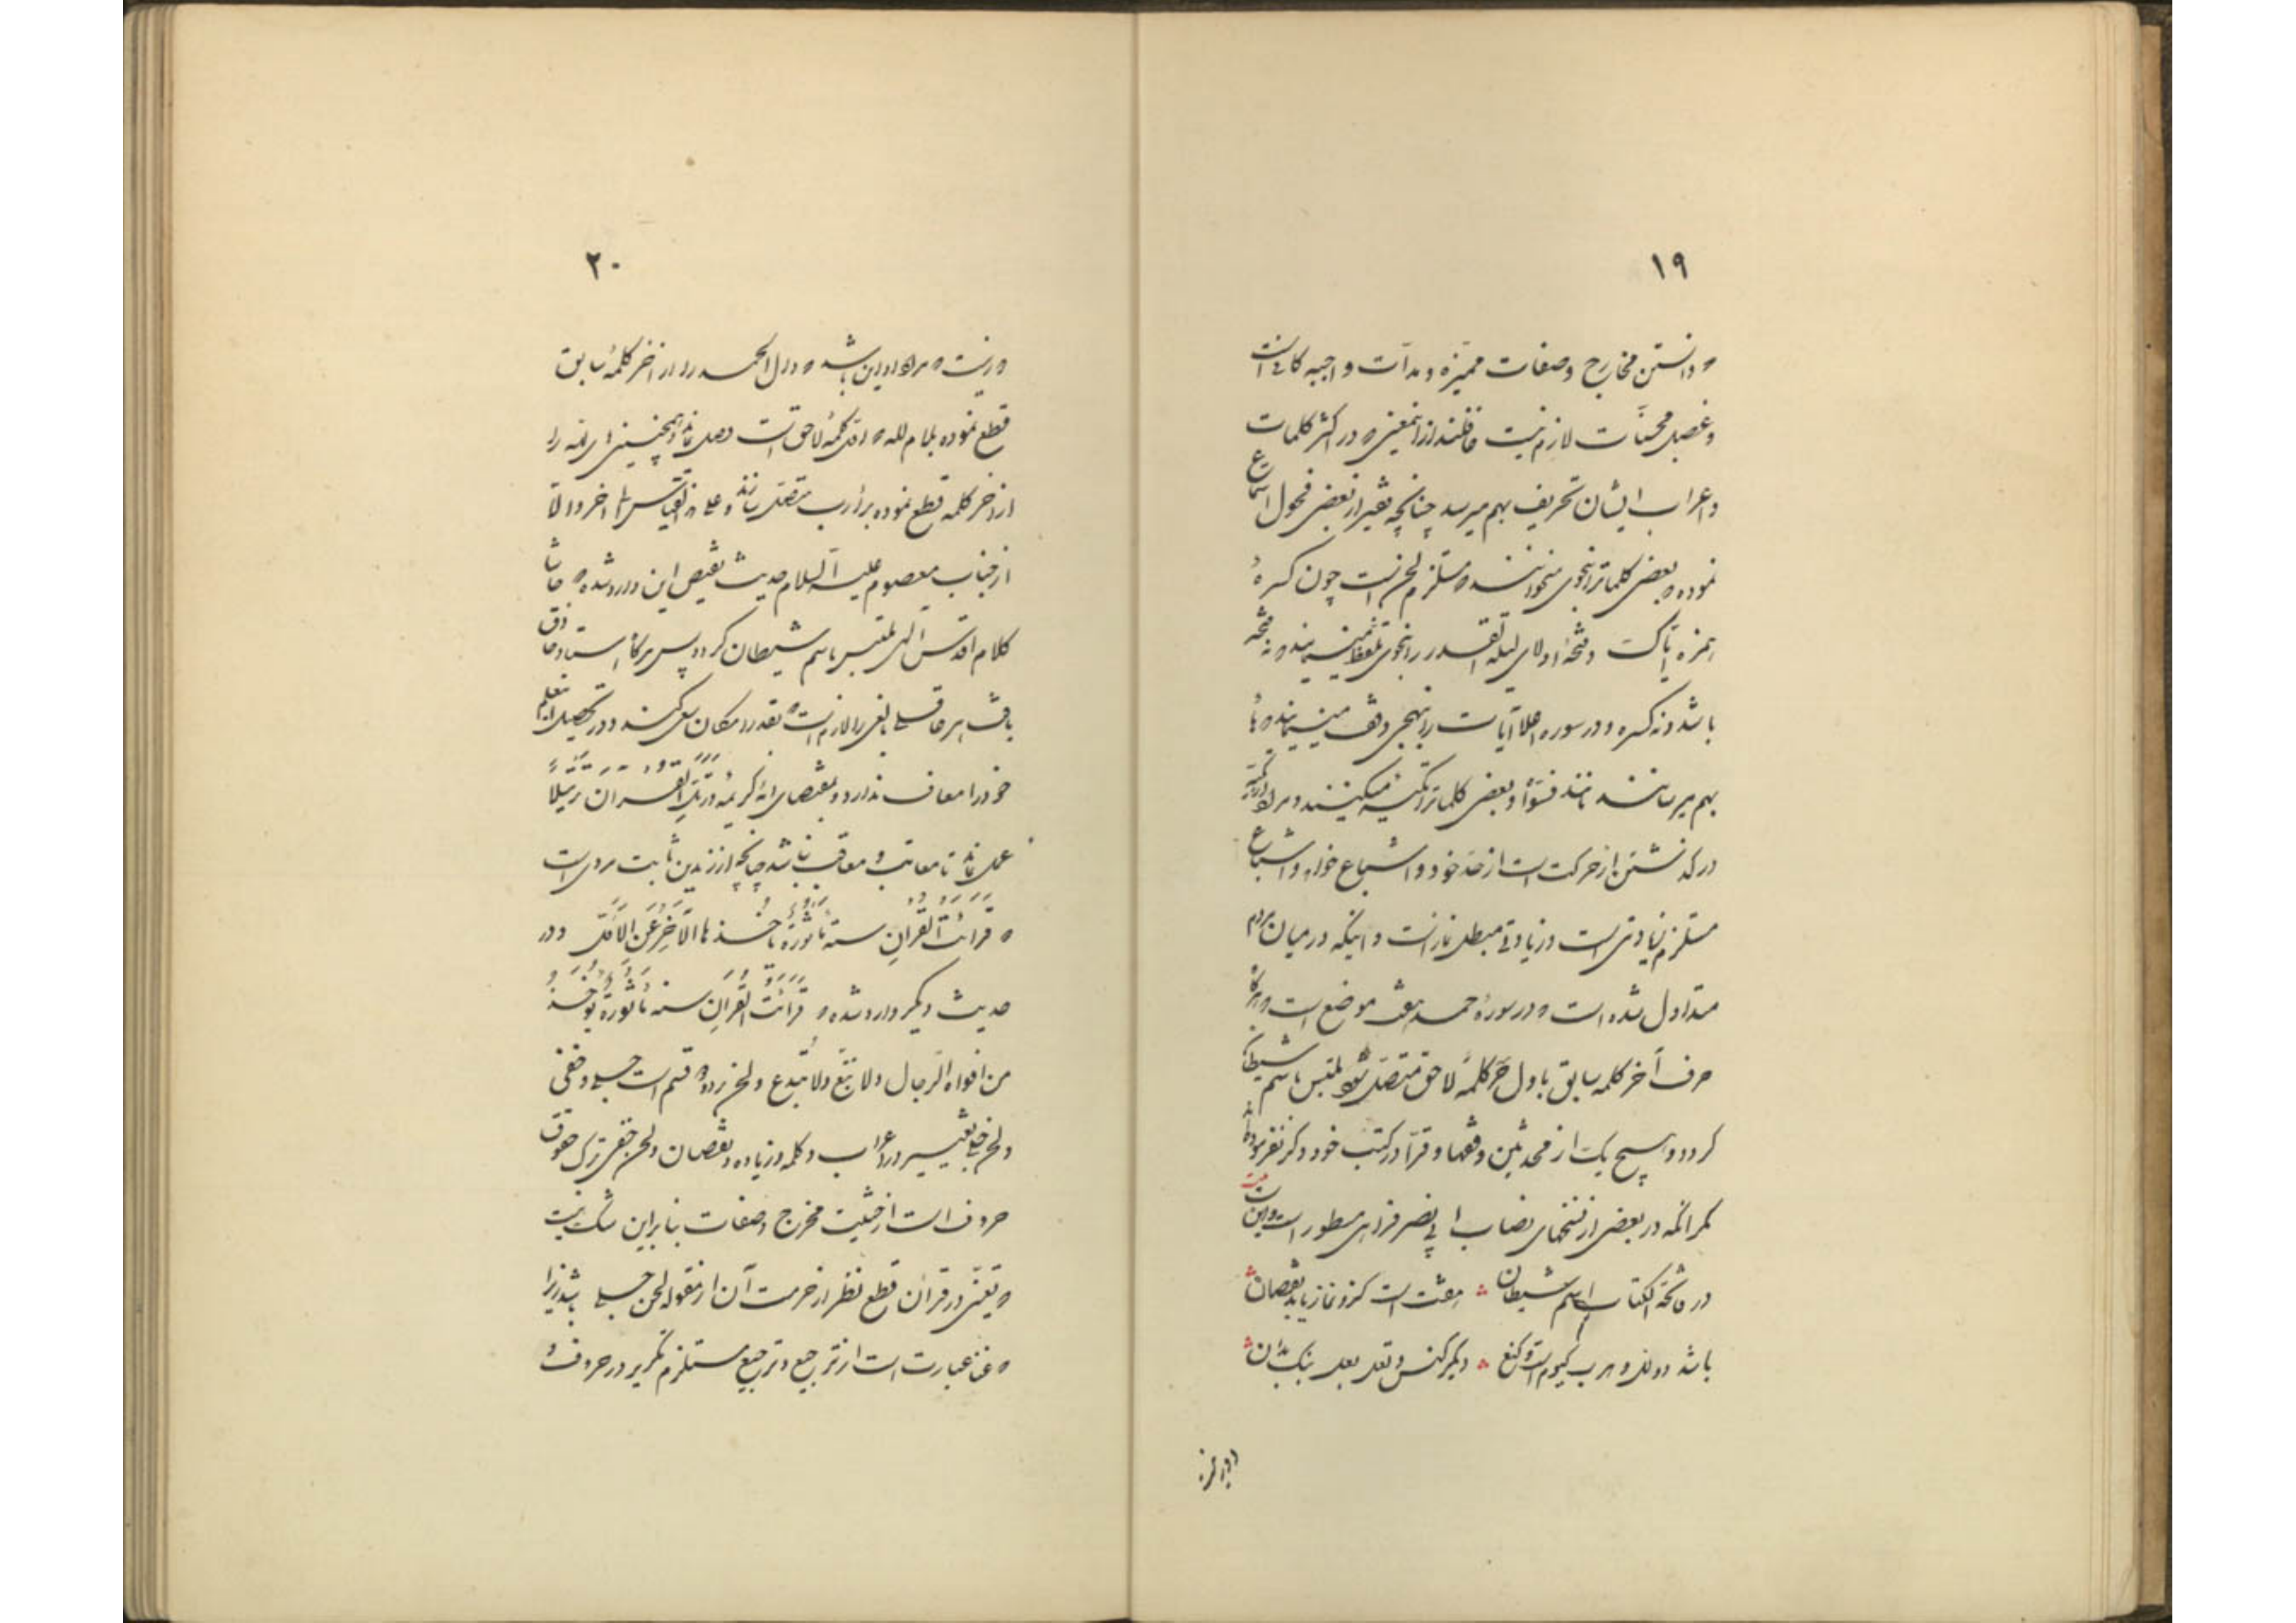 ۱۹
و دانستن مخارج و صفات ممیزه و مدآت واجبه کافی است
و تحصیل محسنات لازم نیست غافلند از اینمعنی که در اکثر کلمات
و اعراب ایشان تحریف بهم میرسد چنانچه تغیر از بعضی فحول استماع
نموده که بعضی کلماترا بنحوی میخوانند که مستلزم لحن است چون کسرهٔ
همزه ایاک و فتحهٔ اولای لیلة القدر را بنحوی تلفظ مینمایند که نه فتحه
باشد و نه کسره و در سوره آیات را بنهجی وقف مینمایند که
بهم میرسانند مانند و بعضی کلماترا مینمایند و مراد
در گذشتن از حرکت است از حد خود و اشباع خواه و اشباع
مستلزم زیادتی است و زیادتی مبطل نماز است و اینکه در میان مردم
متداول شده است که در سورهٔ حمد هفت موضع است که هرگاه
حرف آخر کلمه سابق باول کلمهٔ لاحق متصل شود ملتبس باسم شیطان
گردد و هیچ یک از محدثین و فقها و قرّا در کتب خود ذکر نفرموده‌اند
مگر آنکه در بعضی از نسخهای نصاب ابی نصر فراهی مسطور است و این
در فاتحة الکتاب اسم شیطان هفت است کزو نماز یابد نقصان
باشد دلل و هرب کیوم است و کنع دیگر کنس و تعل بعل نیک بدان
۲۰
و نیست که مراد این باشد که دال الحمد را از آخر کلمهٔ سابق
قطع نموده بلام لله که اول کلمهٔ لاحق است وصل نماید و همچنین های لله را
از آخر کلمه قطع نموده برای رب متصل سازند و علی هذا القیاس تا آخر و الا
از جناب معصوم علیه السلام حدیث بنقیض این وارد شده که حاشا
کلام اقدس الهی ملتبس باسم شیطان گردد پس هرگاه استاد حاذق
باشد هر عاقل بالغ را لازم است که بقدر امکان سعی کند و در تحصیل این علم
خود را معاف ندارد و بمقتضای آیهٔ کریمه وَرَتِّلِ القُرآن تَرتیلاً
عمل نماید تا معاتب و معاقب نباشد چنانچه از زید بن ثابت مرویست
که قرائت القرآنِ سنة مأثورة یأخذها الآخِر عن الاوّل و در
حدیث دیگر وارد شده که قرائت القرآنِ سنة مأثورة یؤخذ
من افواه الرجال ولا تتبع ولا تبتدع و لحن بر دو قسم است جلی و خفی
و لحن جلی تغییر در اعراب و کلمه و زیاده و نقصان و لحن خفی ترک حقوق
حروف است از حیثیت مخرج و صفات بنابراین شک نیست
که تغنی در قرآن قطع نظر از حرمت آن از مقوله لحن جلی باشد زیرا
که غنا عبارت است از ترجیع و ترجیع مستلزم تکریر در حروف و